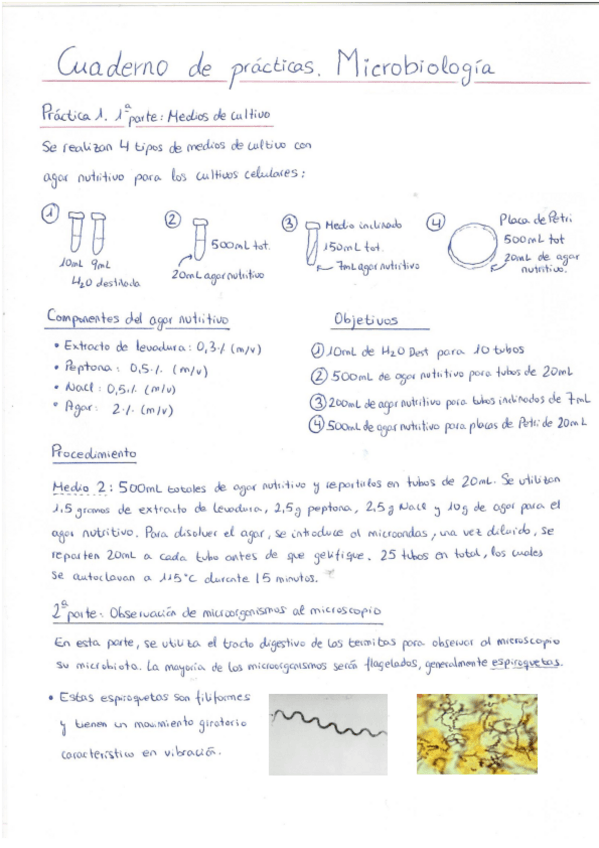 Cuaderno de prácticas. Microbiología
Práctica 1. 1ª parte: Medios de cultivo
Se realizan 4 tipos de medios de cultivo con
agar nutritivo para los cultivos celulares:
1
10mL 9mL
H2O destilada
2
500mL tot.
20mL agar nutritivo
3
Medio inclinado
150mL tot.
7mL agar nutritivo
4
Placa de Petri
500mL tot
20mL de agar
nutritivo.
Componentes del agar nutritivo
• Extracto de levadura: 0,3% (m/v)
• Peptona: 0,5% (m/v)
• NaCl: 0,5% (m/v)
• Agar: 2% (m/v)
Objetivos
1 10mL de H2O Dest para 10 tubos
2 500mL de agar nutritivo para tubos de 20mL
3 200mL de agar nutritivo para tubos inclinados de 7mL
4 500mL de agar nutritivo para placas de Petri de 20mL
Procedimiento
Medio 2: 500mL totales de agar nutritivo y repartirlos en tubos de 20mL. Se utilizan
1,5 gramos de extracto de levadura, 2,5g peptona, 2,5g NaCl y 10g de agar para el
agar nutritivo. Para disolver el agar, se introduce al microondas, una vez diluido, se
reparten 20mL a cada tubo antes de que gelifique. 25 tubos en total, los cuales
se autoclavan a 115°C durante 15 minutos.
2ª parte: Observación de microorganismos al microscopio
En esta parte, se utiliza el tracto digestivo de las termitas para observar al microscopio
su microbiota. La mayoría de los microorganismos serán flagelados, generalmente espiroquetas.
• Estas espiroquetas son filiformes
y tienen un movimiento giratorio
característico en vibración.